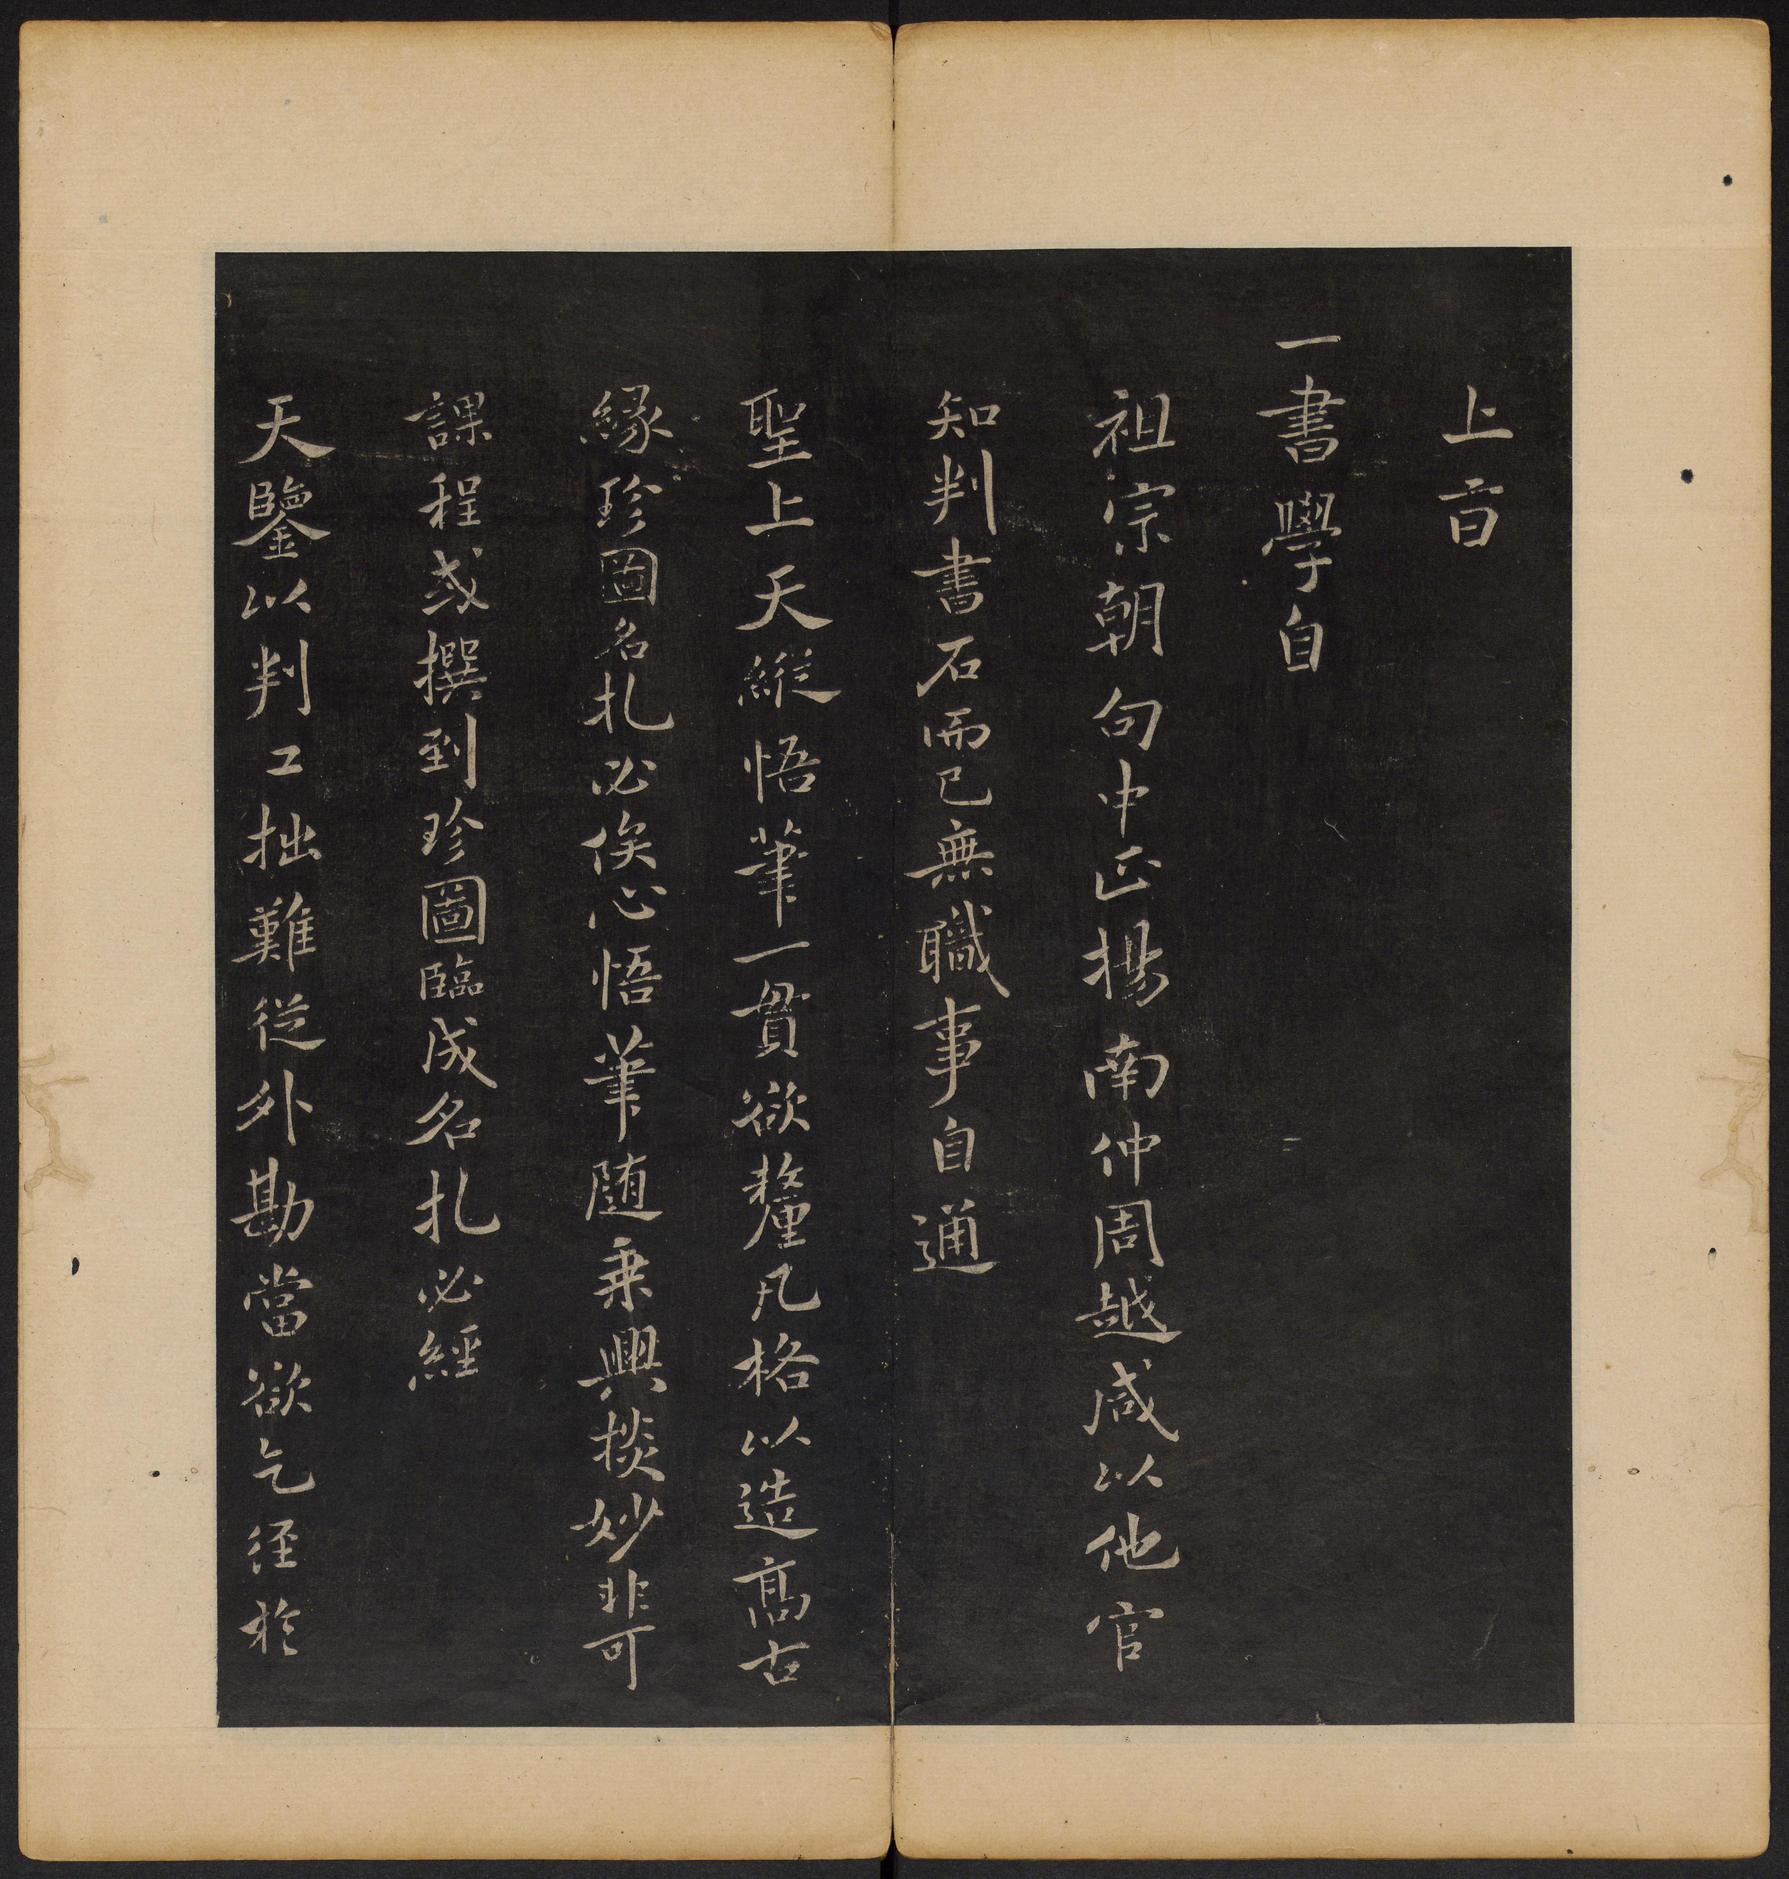 上旨
一書學自
祖宗朝句中正楊南仲周越咸以他官
知判書石而已無職事自通
聖上天縱悟筆一貫欲釐凡格以造高古
緣珍圖名札必俟心悟筆隨乘興掞妙非可
課程或撰到珍圖臨成名札必經
天鑒以判工拙難從外勘當欲乞徑於